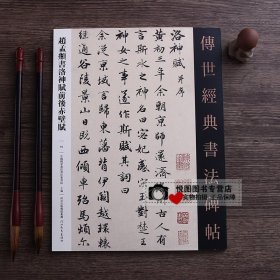 傳世經典書法碑帖
洛神賦 并序
黃初三年余朝京師還濟洛川古人有
言斯水之神名曰宓妃感宋玉對楚王
神女之事遂作斯賦其詞曰
余從京域言歸東藩背伊闕越轘轅
經通谷陵景山日既西傾車殆馬煩尔
趙孟頫書洛神賦前後赤壁賦